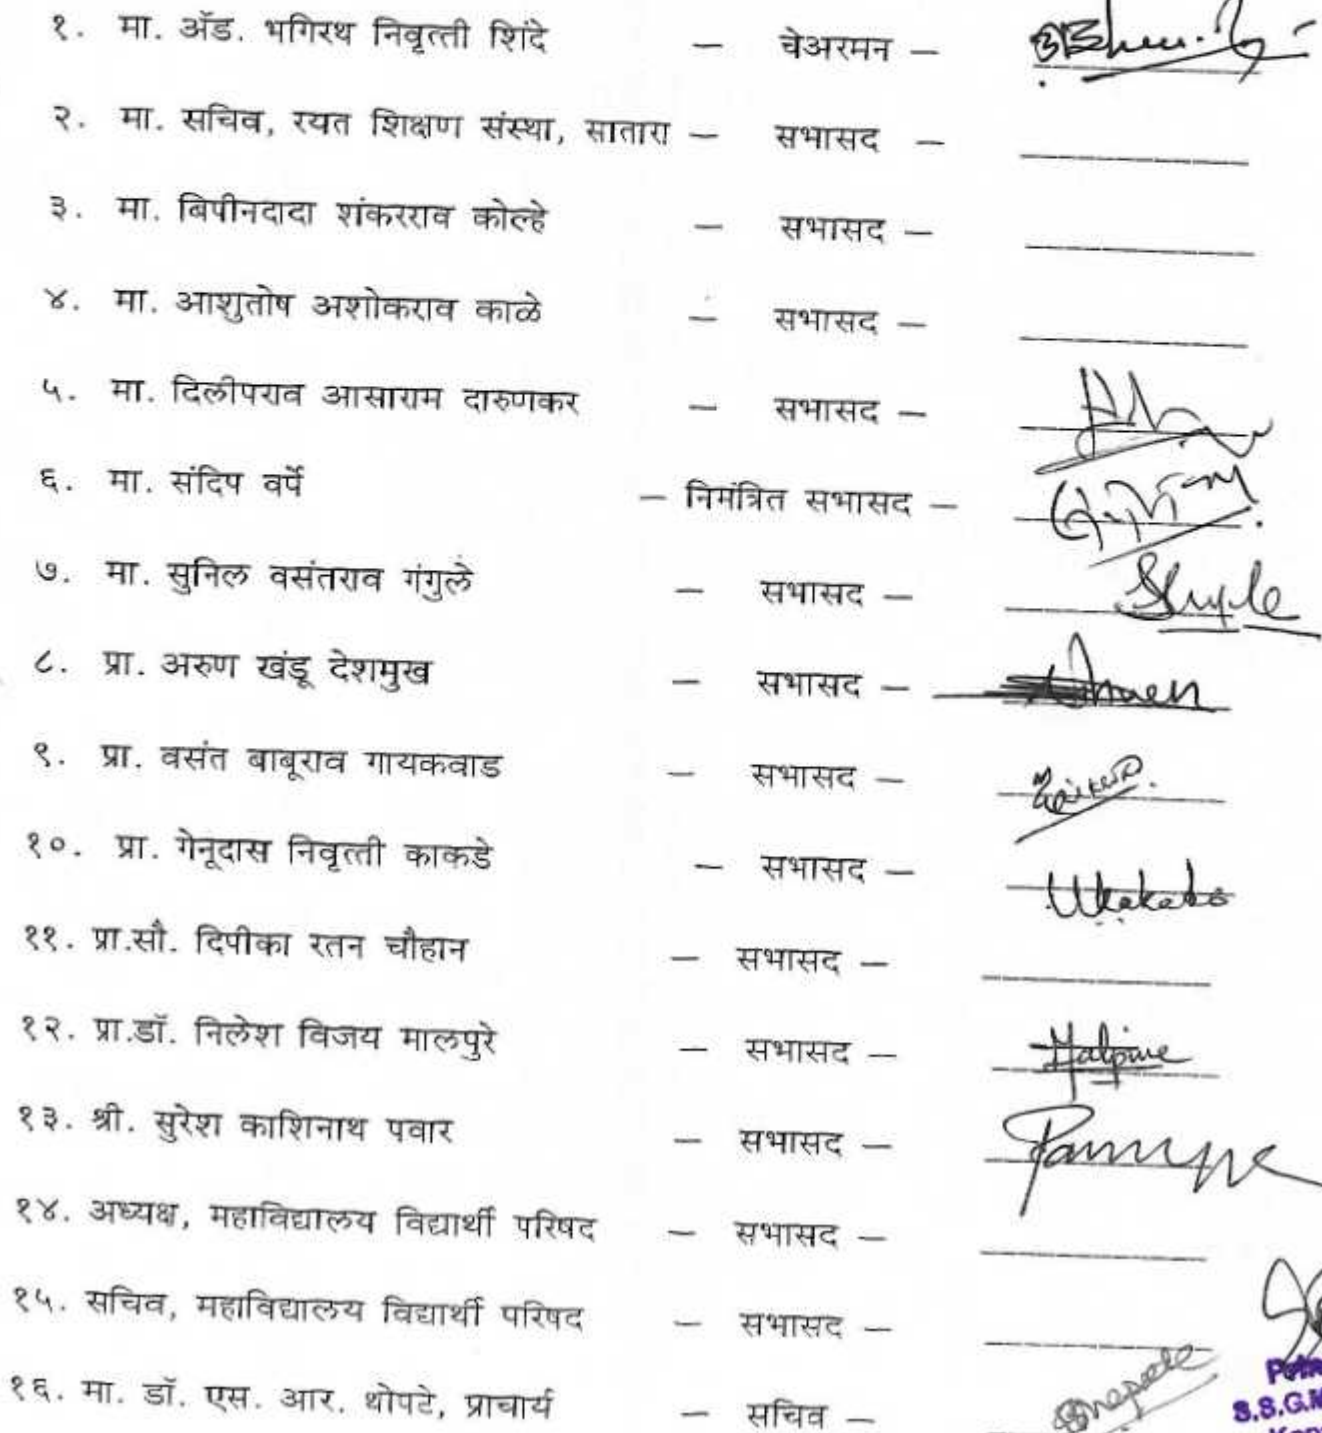 १. मा. ॲड. भगिरथ निवृत्ती शिंदे – चेअरमन –
२. मा. सचिव, रयत शिक्षण संस्था, सातारा – सभासद –
३. मा. बिपीनदादा शंकरराव कोल्हे – सभासद –
४. मा. आशुतोष अशोकराव काळे – सभासद –
५. मा. दिलीपराव आसाराम दारुणकर – सभासद –
६. मा. संदिप वर्पे – निमंत्रित सभासद –
७. मा. सुनिल वसंतराव गंगुले – सभासद –
८. प्रा. अरुण खंडू देशमुख – सभासद –
९. प्रा. वसंत बाबूराव गायकवाड – सभासद –
१०. प्रा. गेनूदास निवृत्ती काकडे – सभासद –
११. प्रा.सौ. दिपीका रतन चौहान – सभासद –
१२. प्रा.डॉ. निलेश विजय मालपुरे – सभासद – Malpure
१३. श्री. सुरेश काशिनाथ पवार – सभासद –
१४. अध्यक्ष, महाविद्यालय विद्यार्थी परिषद – सभासद –
१५. सचिव, महाविद्यालय विद्यार्थी परिषद – सभासद –
१६. मा. डॉ. एस. आर. थोपटे, प्राचार्य – सचिव –
S.S.G.M